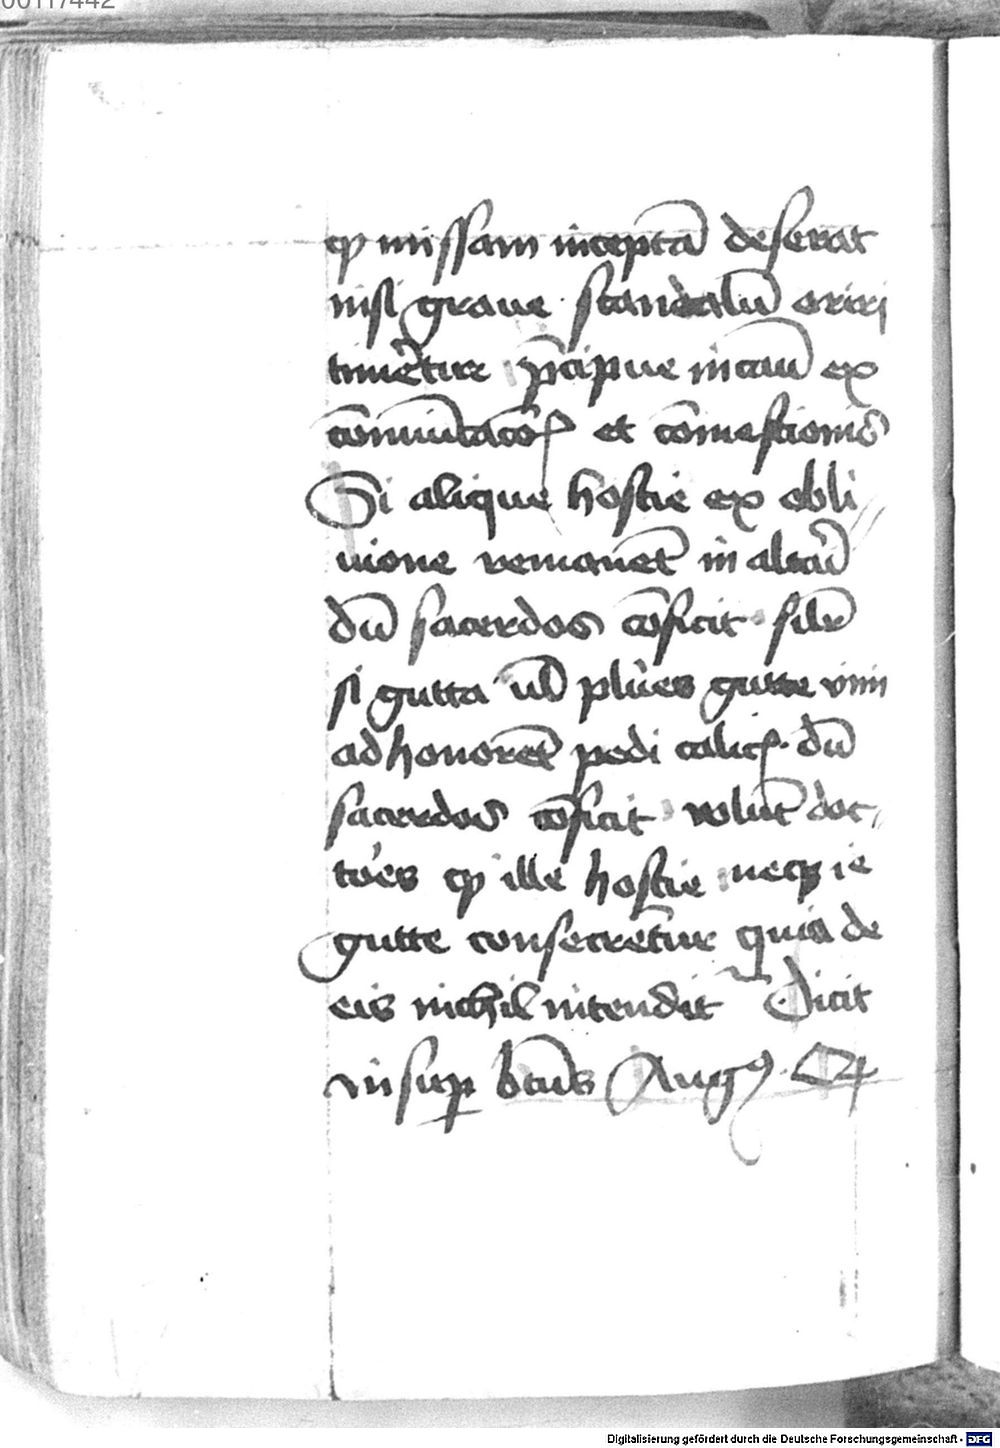 00117442
ꝙ missam inceptā deserat
nisi graue scandalū oriri
timēetur p̄cipue in cāu ex
cōmuicacōꝭ et cōmestionis
Si alique hostie ex obli//
uione remanēt in altari
dū sacerdos cōficit silr̄
si gutta ul̄ plures gutte vini
adhonorēt pedi calicꝭ dū
sacerdos cōficit volūt doc/
tores ꝙ ille hostie neqꝫ ie
gutte consecrētur quia de
eis nichil intendit Dicit
insuꝑ btūs Augꝰ Q
Digitalisierung gefördert durch die Deutsche Forschungsgemeinschaft - DFG